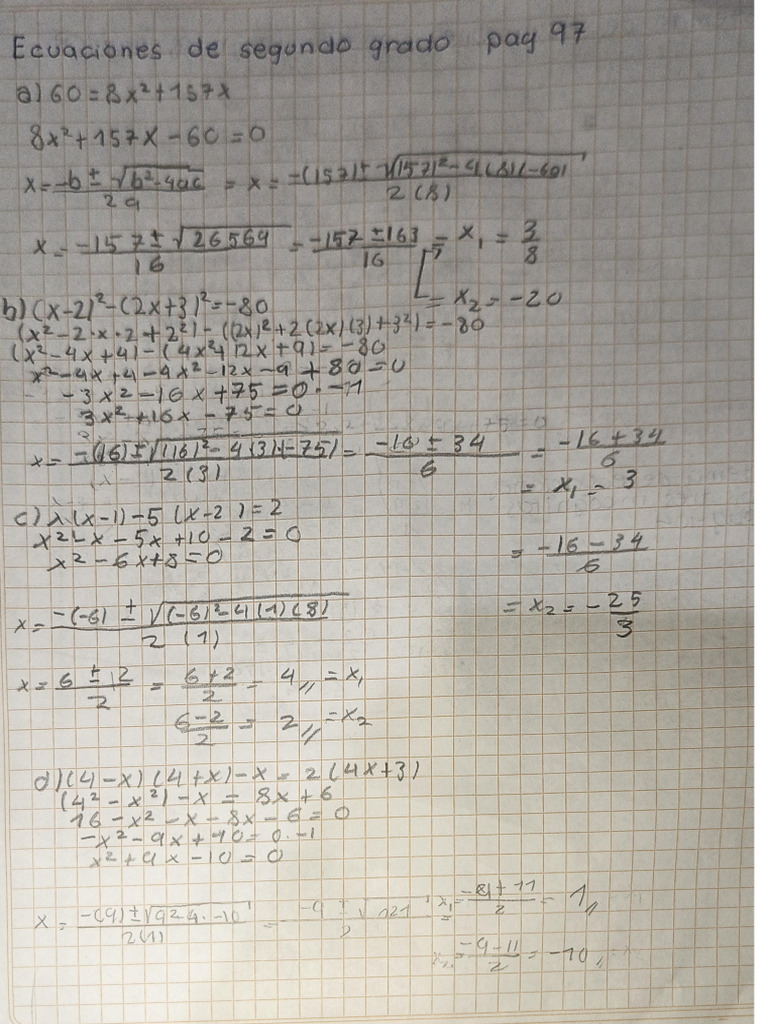 Ecuaciones de segundo grado pag 97
a) 60 = 8x² + 157x
8x² + 157x - 60 = 0
x = -b ± √b² - 4ac / 2a = x = -(157) ± √(157)² - 4(8)(-60) / 2(8)
x = -157 ± √26569 / 16 = -157 ± 163 / 16 = x₁ = 3/8
= x₂ = -20
b) (x-2)² - (2x+3)² = -80
(x² - 2·x·2 + 2²) - ((2x)² + 2(2x)(3) + 3²) = -80
(x² - 4x + 4) - (4x² + 12x + 9) = -80
x² - 4x + 4 - 4x² - 12x - 9 + 80 = 0
-3x² - 16x + 75 = 0 · -1
3x² + 16x - 75 = 0
x = -(16) ± √(16)² - 4(3)(-75) / 2(3) = -16 ± 34 / 6 = -16 + 34 / 6
= x₁ = 3
= -16 - 34 / 6
= x₂ = -25/3
c) x(x-1) - 5(x-2) = 2
x² - x - 5x + 10 - 2 = 0
x² - 6x + 8 = 0
x = -(-6) ± √(-6)² - 4(1)(8) / 2(1)
x = 6 ± 2 / 2 = 6+2 / 2 = 4 = x₁
6-2 / 2 = 2 = x₂
d) (4-x)(4+x) - x = 2(4x+3)
(4² - x²) - x = 8x + 6
16 - x² - x - 8x - 6 = 0
-x² - 9x + 10 = 0 · -1
x² + 9x - 10 = 0
x = -(9) ± √9² 4 · -10 / 2(1) = -9 ± √121 / 2 = x₁ = -9 + 11 / 2 = 1
x₂ = -9 - 11 / 2 = -10